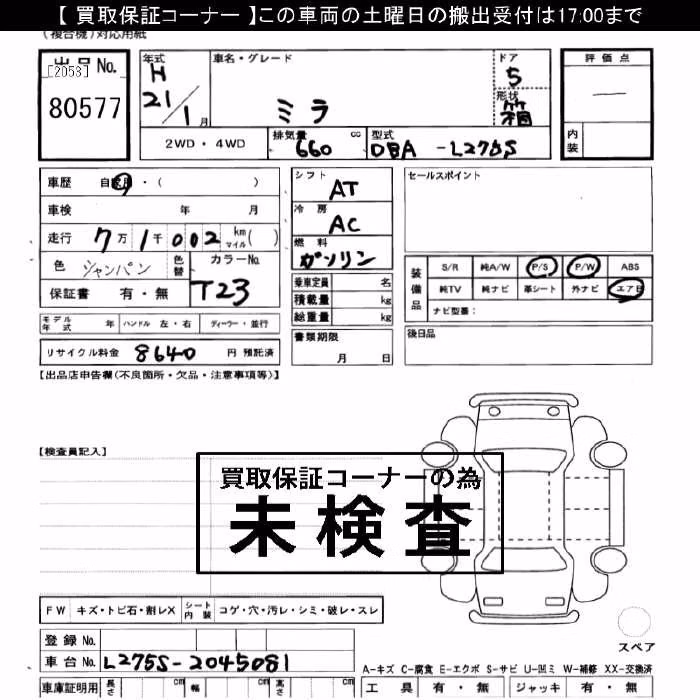 【 買取保証コーナー 】この車両の土曜日の搬出受付は17:00まで
(複合機)対応用紙
出品No. [2053] 80577
年式 H 21/1月
車名・グレード ミラ
ドア 5
形状 箱
評価点 ―
内装
2WD・4WD
排気量 660 cc
型式 DBA -L275S
車歴 自家用・( )
車検 年 月
走行 7万1千002 km マイル( )
色 シャンパン 色替 カラーNo. T23
保証書 有・無
モデル年式 年 ハンドル 左・右 ディーラー・並行
リサイクル料金 8640 円 預託済
シフト AT
冷房 AC
燃料 ガソリン
乗車定員 名
積載量 kg
総重量 kg
書類期限 月 日
セールスポイント
装備品 S/R 純A/W P/S P/W ABS
純TV 純ナビ 革シート 外ナビ エアB
ナビ型番：
後日品
【出品店申告欄(不良箇所・欠品・注意事項等)】
【検査員記入】
買取保証コーナーの為
未検査
FW キズ・トビ石・割レX シート内装 コゲ・穴・汚レ・シミ・破レ・スレ
スペア
登録No.
車台No. L275S-2045081
A-キズ C-腐食 E-エクボ S-サビ U-凹ミ W-補修 XX-交換済
車庫証明用 長さ cm 幅 cm 高さ cm
工具 有・無 ジャッキ 有・無